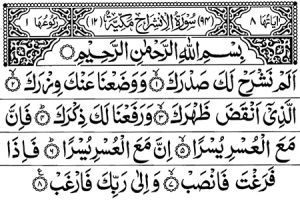 اٰيَاتُهَا ٨ (٩٤) سُوْرَةُ الْاِنْشِرَاحِ مَكِّيَّةٌ (١٢) رُكُوْعُهَا ١
بِسْمِ اللّٰهِ الرَّحْمٰنِ الرَّحِيْمِ
اَلَمْ نَشْرَحْ لَكَ صَدْرَكَ ۝١ وَوَضَعْنَا عَنْكَ وِزْرَكَ ۝٢
الَّذِىْٓ اَنْقَضَ ظَهْرَكَ ۝٣ وَرَفَعْنَا لَكَ ذِكْرَكَ ۝٤ فَاِنَّ
مَعَ الْعُسْرِ يُسْرًا ۝٥ اِنَّ مَعَ الْعُسْرِ يُسْرًا ۝٦ فَاِذَا
فَرَغْتَ فَانْصَبْ ۝٧ وَاِلٰى رَبِّكَ فَارْغَبْ ۝٨